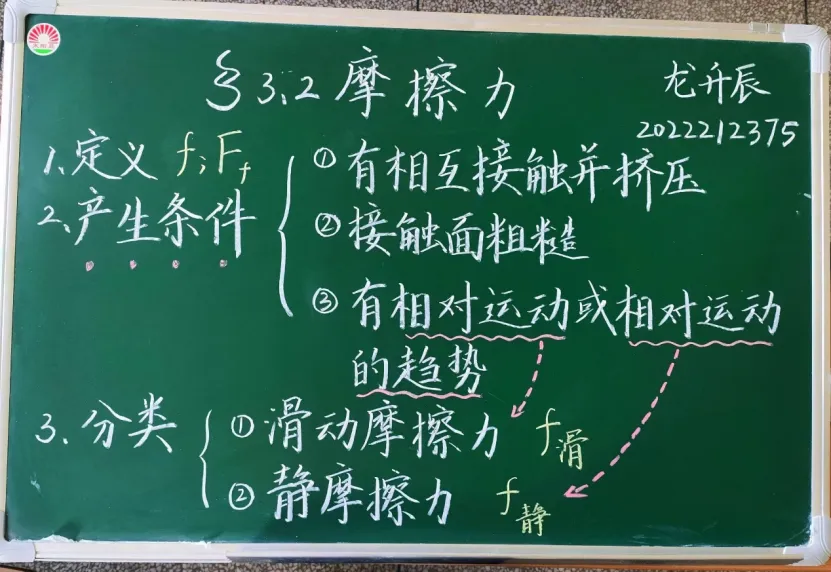 §3.2摩擦力
龙升辰
2022212375
1、定义 f；Ff
2、产生条件
①有相互接触并挤压
②接触面粗糙
③有相对运动或相对运动
的趋势
3、分类
①滑动摩擦力 f滑
②静摩擦力 f静